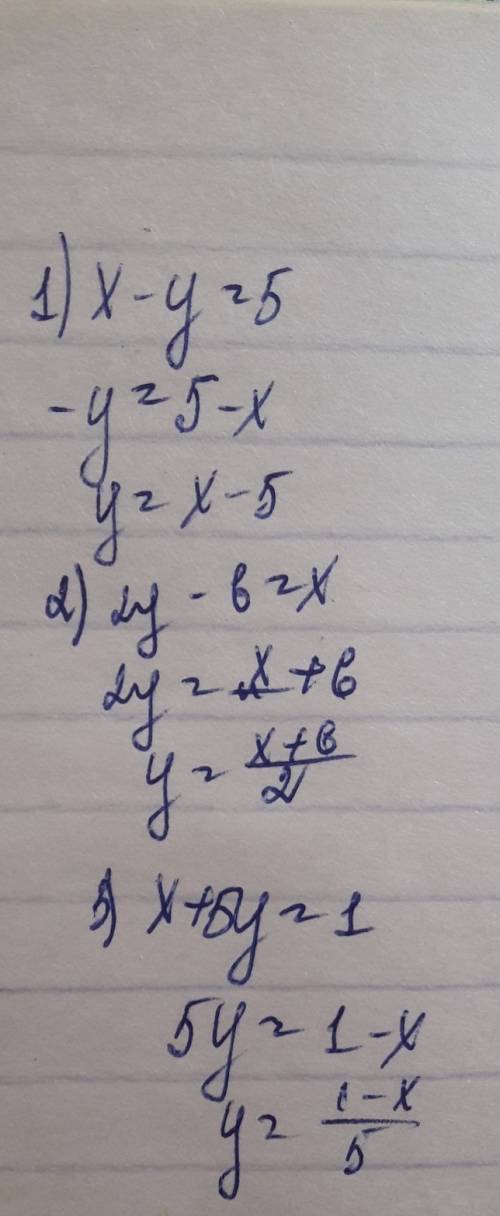 1) x - y = 5
-y = 5 - x
y = x - 5
2) 2y - 6 = x
2y = x + 6
y = \frac{x+6}{2}
3) x + 5y = 1
5y = 1 - x
y = \frac{1-x}{5}